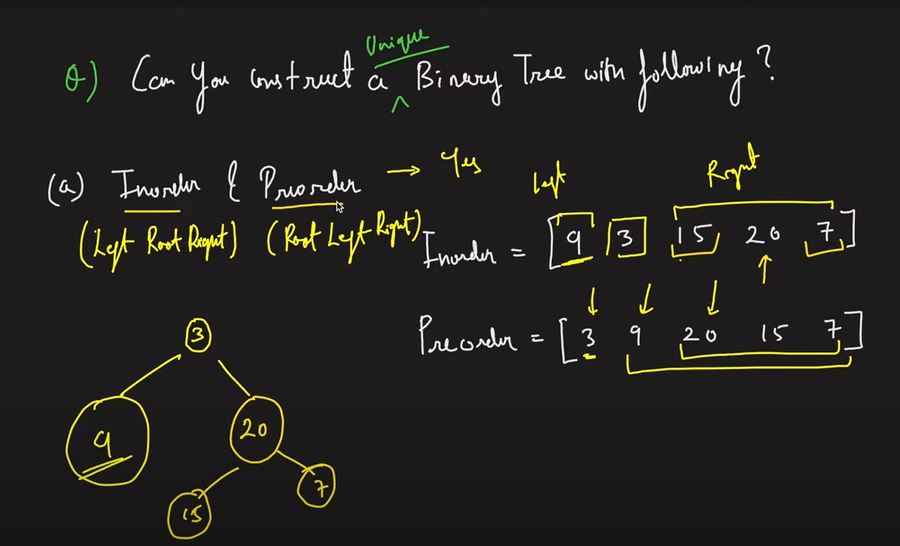 Unique
Q) Can You construct a ^ Binary Tree with following?
(a) Inorder & Preorder → Yes
(Left Root Right) (Root Left Right)
Left Right
Inorder = [9 3 15 20 7]
Preorder = [3 9 20 15 7]
3
9 20
15 7